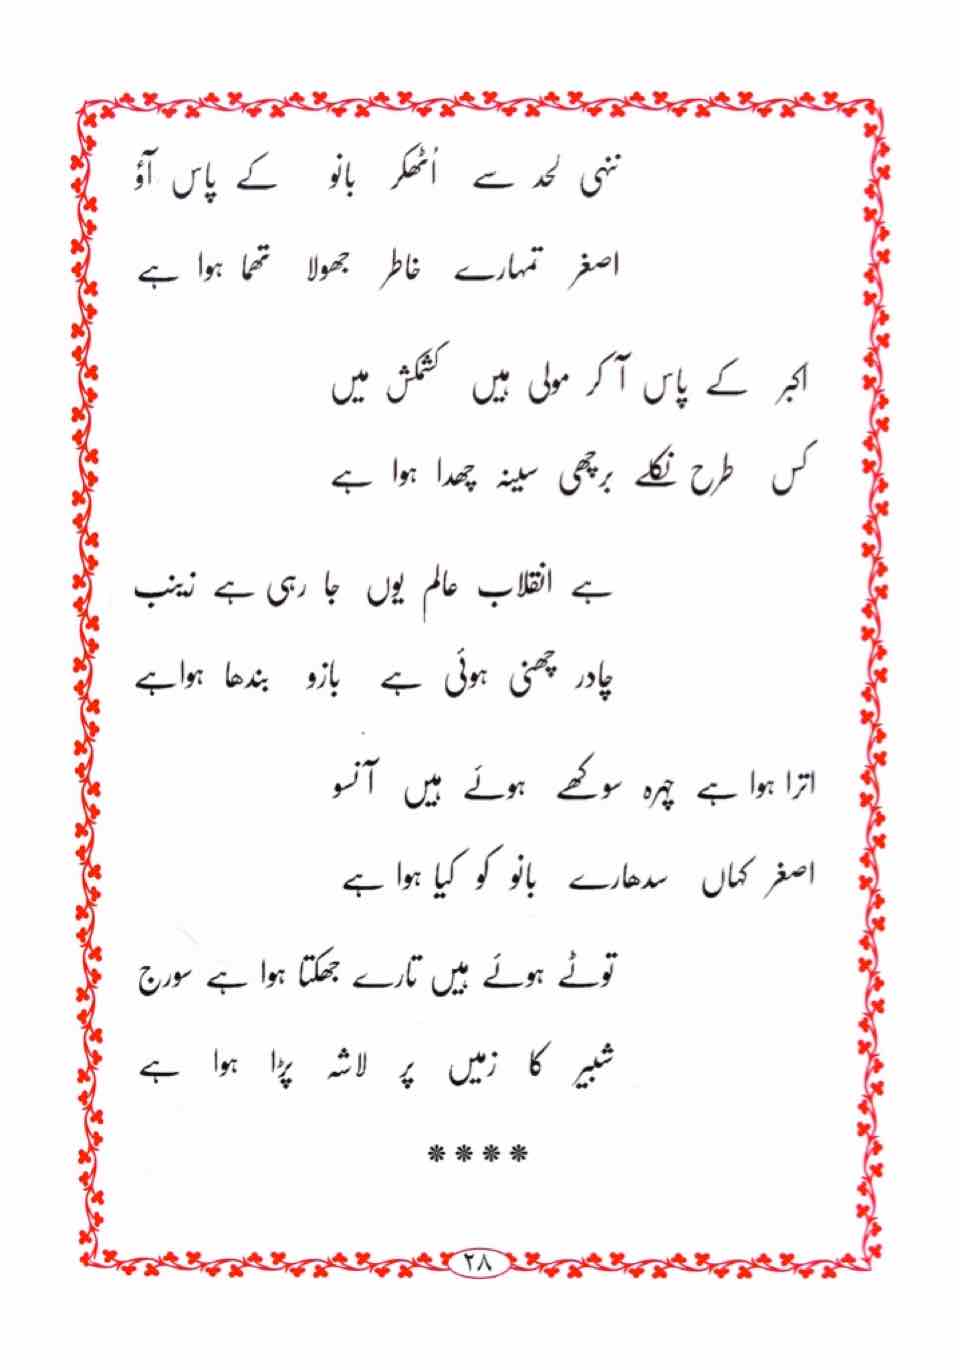 ننہی لحد سے اُٹھکر بانو کے پاس آؤ
اصغر تمہارے خاطر جھولا تھما ہوا ہے
اکبر کے پاس آ کر مولی ہیں کشمکش میں
کس طرح نکلے برچھی سینہ چھدا ہوا ہے
ہے انقلاب عالم یوں جا رہی ہے زینب
چادر چھنی ہوئی ہے بازو بندھا ہواہے
اترا ہوا ہے چہرہ سوکھے ہوئے ہیں آنسو
اصغر کہاں سدھارے بانو کو کیا ہوا ہے
توٹے ہوئے ہیں تارے جھکتا ہوا ہے سورج
شبیر کا زمیں پر لاشہ پڑا ہوا ہے
****
۲۸